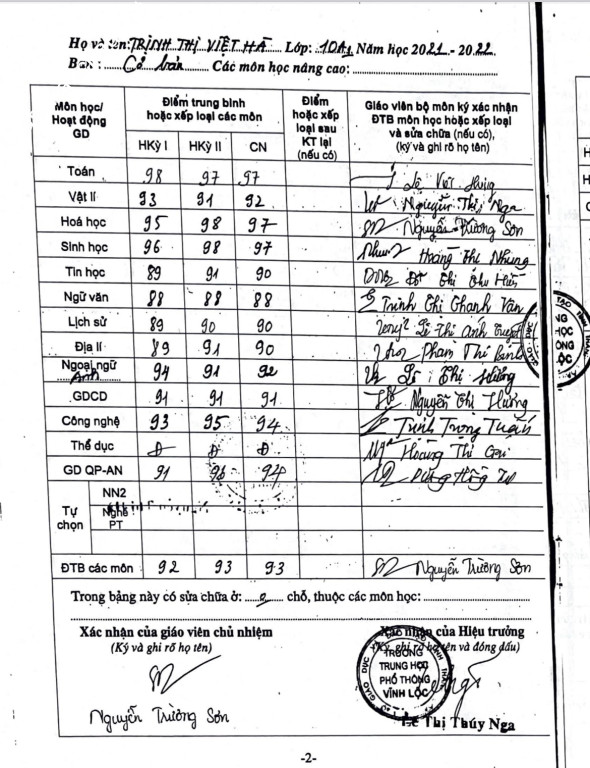 Họ và tên: TRỊNH THỊ VIỆT HÀ Lớp: 10A1 Năm học 2021 - 2022
Ban: Cơ bản Các môn học nâng cao:
Môn học/ Hoạt động GD | Điểm trung bình hoặc xếp loại các môn | Điểm hoặc xếp loại sau KT lại (nếu có) | Giáo viên bộ môn ký xác nhận ĐTB môn học hoặc xếp loại và sửa chữa (nếu có), (ký và ghi rõ họ tên)
HKỳ I | HKỳ II | CN
Toán 98 97 97 Lê Việt Hùng
Vật lí 93 91 92 Nguyễn Thị Nga
Hoá học 95 98 97 Nguyễn Trường Sơn
Sinh học 96 98 97 Hoàng Thị Nhung
Tin học 89 91 90 Đỗ Thị Thu Hiền
Ngữ văn 88 88 88 Trịnh Thị Thanh Vân
Lịch sử 89 90 90 Lê Thị Anh
Địa lí 89 91 90 Phạm Thị
Ngoại ngữ Anh 94 91 92 Lê Thị Hường
GDCD 91 91 91 Nguyễn Thị Hương
Công nghệ 93 95 94 Trịnh Trọng Tuấn
Thể dục Đ Đ Đ Hoàng Thị
GD QP-AN 91 96 94
Tự chọn
NN2
Nghề PT
ĐTB các môn 92 93 93 Nguyễn Trường Sơn
Trong bảng này có sửa chữa ở: 0 chỗ, thuộc các môn học:
Xác nhận của giáo viên chủ nhiệm
(Ký và ghi rõ họ tên)
Nguyễn Trường Sơn
Xác nhận của Hiệu trưởng
(Ký, ghi rõ họ tên và đóng dấu)
TRƯỜNG
TRUNG HỌC
PHỔ THÔNG
VĨNH LỘC
Lê Thị Thúy Nga
-2-